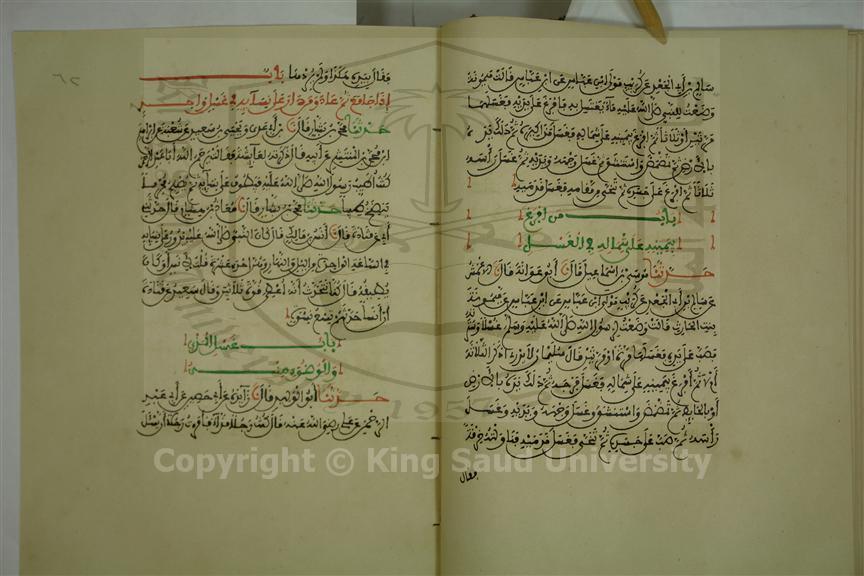 سالم بن أبي الجعد عن كريب مولى ابن عباس عن ابن عباس قال قالت ميمونة
وضعت للنبي صلى الله عليه ماء يغتسل به فأفرغ على يديه فغسلهما
مرتين أو ثلاثا ثم أفرغ بيمينه على شماله فغسل مذاكيره ثم دلك يده
بالأرض ثم تمضمض واستنشق ثم غسل وجهه ويديه ثم غسل رأسه
ثلاثا ثم أفرغ على جسده ثم تنحى من مقامه فغسل قدميه
باب من أفرغ
بيمينه على شماله في الغسل
حدثنا موسى بن إسماعيل قال نا أبو عوانة قال نا الأعمش
عن سالم بن أبي الجعد عن كريب مولى ابن عباس عن ابن عباس عن ميمونة
بنت الحارث قالت وضعت لرسول الله صلى الله عليه وسلم غسلا وسترته
فصب على يده فغسلها مرة أو مرتين قال سليمان لا أدري أذكر الثالثة
أم لا ثم أفرغ بيمينه على شماله فغسل فرجه ثم دلك يده بالأرض
أو بالحائط ثم تمضمض واستنشق وغسل وجهه ويديه وغسل
رأسه ثم صب على جسده ثم تنحى فغسل قدميه فناولته خرقة
فقال
فقال بيده هكذا ولم يردها باب
إذا جامع ثم عاد ومن دار على نسائه في غسل واحد
حدثنا محمد بن بشار قال نا ابن أبي عدي ويحيى بن سعيد عن شعبة عن إبراهيم
ابن محمد بن المنتشر عن أبيه قال ذكرته لعائشة فقالت يرحم الله أبا عبد الرحمن
كنت أطيب رسول الله صلى الله عليه فيطوف على نسائه ثم يصبح محرما
ينضخ طيبا حدثنا محمد بن بشار قال نا معاذ بن هشام قال حدثني
أبي عن قتادة قال نا أنس بن مالك قال كان النبي صلى الله عليه يدور على نسائه
في الساعة الواحدة من الليل والنهار وهن إحدى عشرة قال قلت لأنس أو كان
يطيقه قال كنا نتحدث أنه أعطي قوة ثلاثين وقال سعيد عن قتادة
إن أنسا حدثهم تسع نسوة
باب غسل المذي
والوضوء منه
حدثنا أبو الوليد قال نا زائدة عن أبي حصين عن أبي عبد
الرحمن عن علي رضي الله عنه قال كنت رجلا مذاء فأمرت رجلا أن يسأل
Copyright © King Saud University
1957